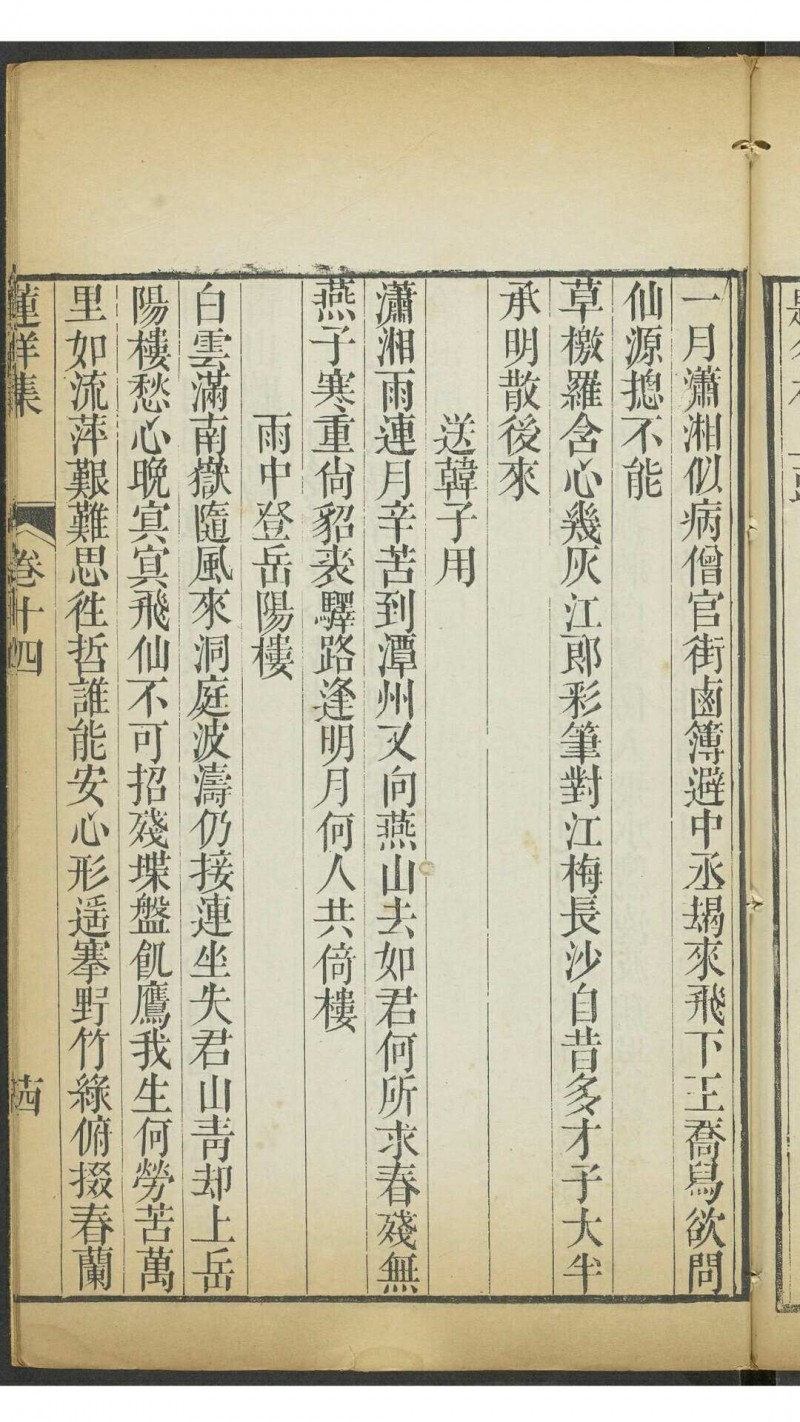 一月瀟湘似病僧官街鹵簿避中丞朅來飛下王喬舄欲問
仙源揔不能
草檄羅含心幾灰江郎彩筆對江梅長沙自昔多才子大半
承明散後來
送韓子用
瀟湘雨連月辛苦到潭州又向燕山去如君何所求春殘無
燕子寒重尙貂裘驛路逢明月何人共倚樓
雨中登岳陽樓
白雲滿南嶽隨風來洞庭波濤仍接連坐失君山靑却上岳
陽樓愁心晚寘寘飛仙不可招殘堞盤飢鷹我生何勞苦萬
里如流萍艱難思徃哲誰能安心形遥搴野竹綠俯掇春蘭
蓮洋集
卷十四